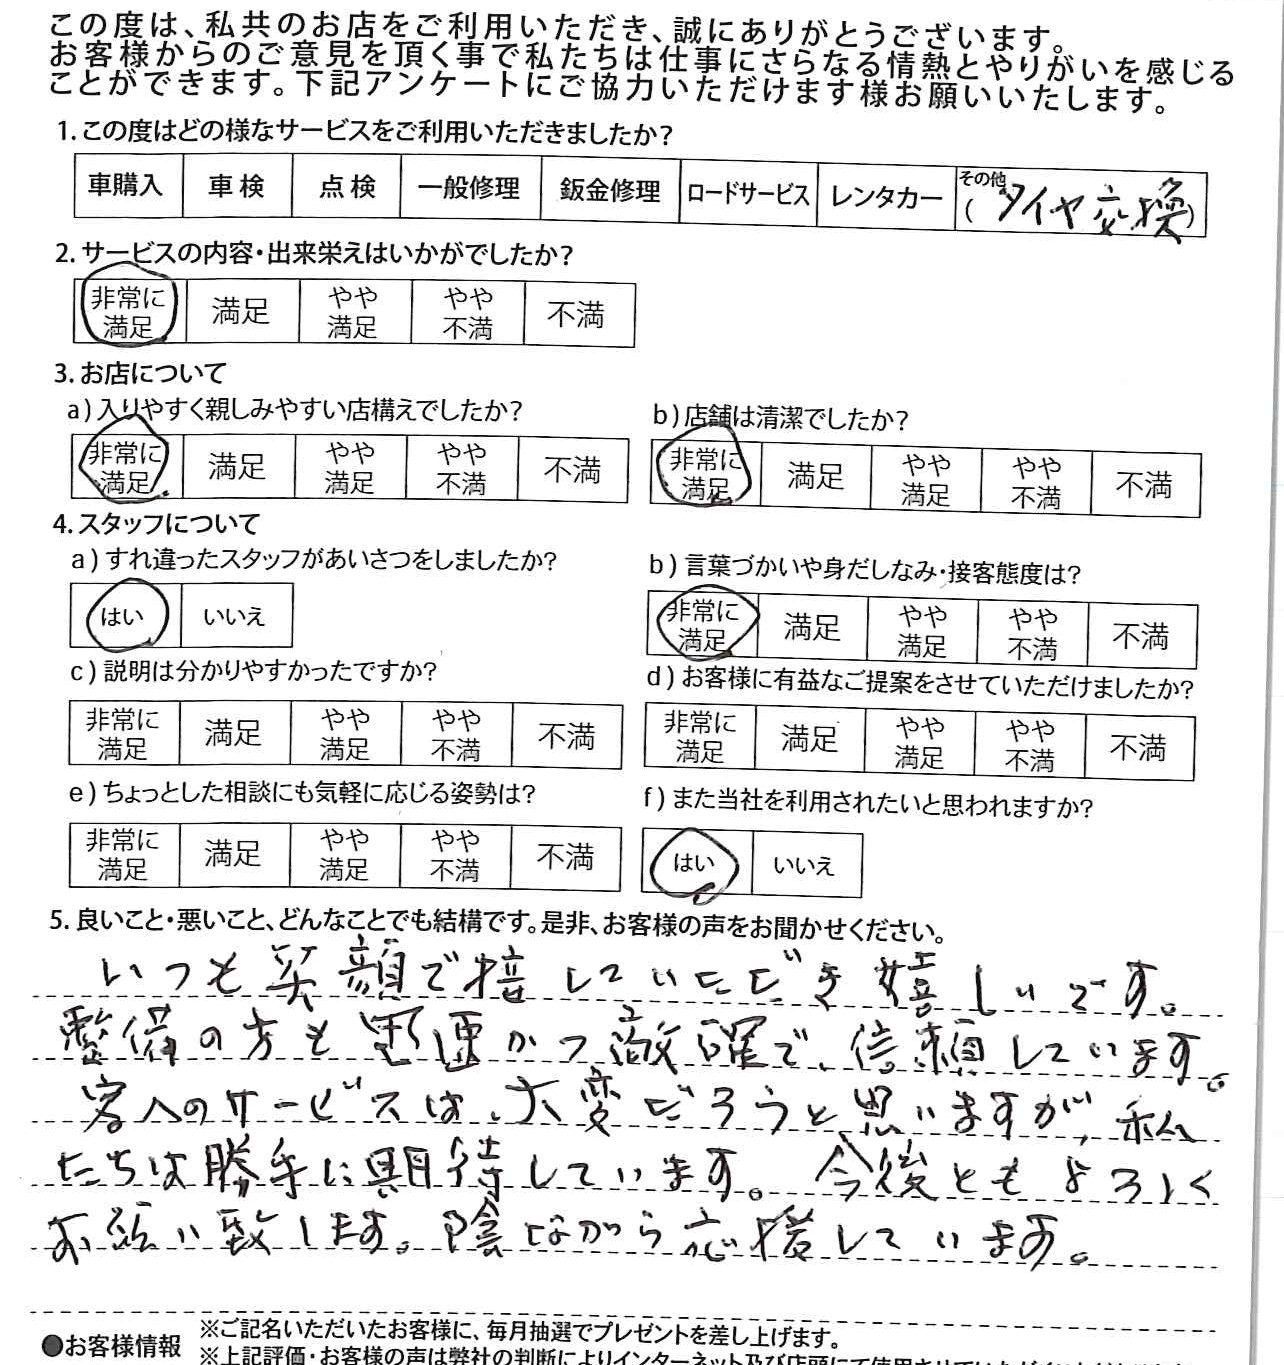 この度は、私共のお店をご利用いただき、誠にありがとうございます。
お客様からのご意見を頂く事で私たちは仕事にさらなる情熱とやりがいを感じる
ことができます。下記アンケートにご協力いただけます様お願いいたします。
1. この度はどの様なサービスをご利用いただきましたか?
車購入 車検 点検 一般修理 鈑金修理 ロードサービス レンタカー その他
(タイヤ交換)
2. サービスの内容・出来栄えはいかがでしたか?
非常に 満足 やや やや 不満
満足 満足 不満
3. お店について
a) 入りやすく親しみやすい店構えでしたか? b) 店舗は清潔でしたか?
非常に 満足 やや やや 不満 非常に 満足 やや やや 不満
満足 満足 不満 満足 満足 不満
4. スタッフについて
a) すれ違ったスタッフがあいさつをしましたか? b) 言葉づかいや身だしなみ・接客態度は?
はい いいえ 非常に 満足 やや やや 不満
満足 満足 不満
c) 説明は分かりやすかったですか? d) お客様に有益なご提案をさせていただけましたか?
非常に 満足 やや やや 不満 非常に 満足 やや やや 不満
満足 満足 不満 満足 満足 不満
e) ちょっとした相談にも気軽に応じる姿勢は? f) また当社を利用されたいと思われますか?
非常に 満足 やや やや 不満 はい いいえ
満足 満足 不満
5. 良いこと・悪いこと、どんなことでも結構です。是非、お客様の声をお聞かせください。
いつも笑顔で接していただき嬉しいです。
整備の方も迅速かつ的確で、信頼しています。
客へのサービスは、大変だろうと思いますが、私
たちは勝手に期待しています。今後ともよろしく
お願い致します。陰ながら応援しています。
●お客様情報 ※ご記名いただいたお客様に、毎月抽選でプレゼントを差し上げます。
※上記評価・お客様の声は弊社の判断によりインターネット及び店頭にて使用させていただく